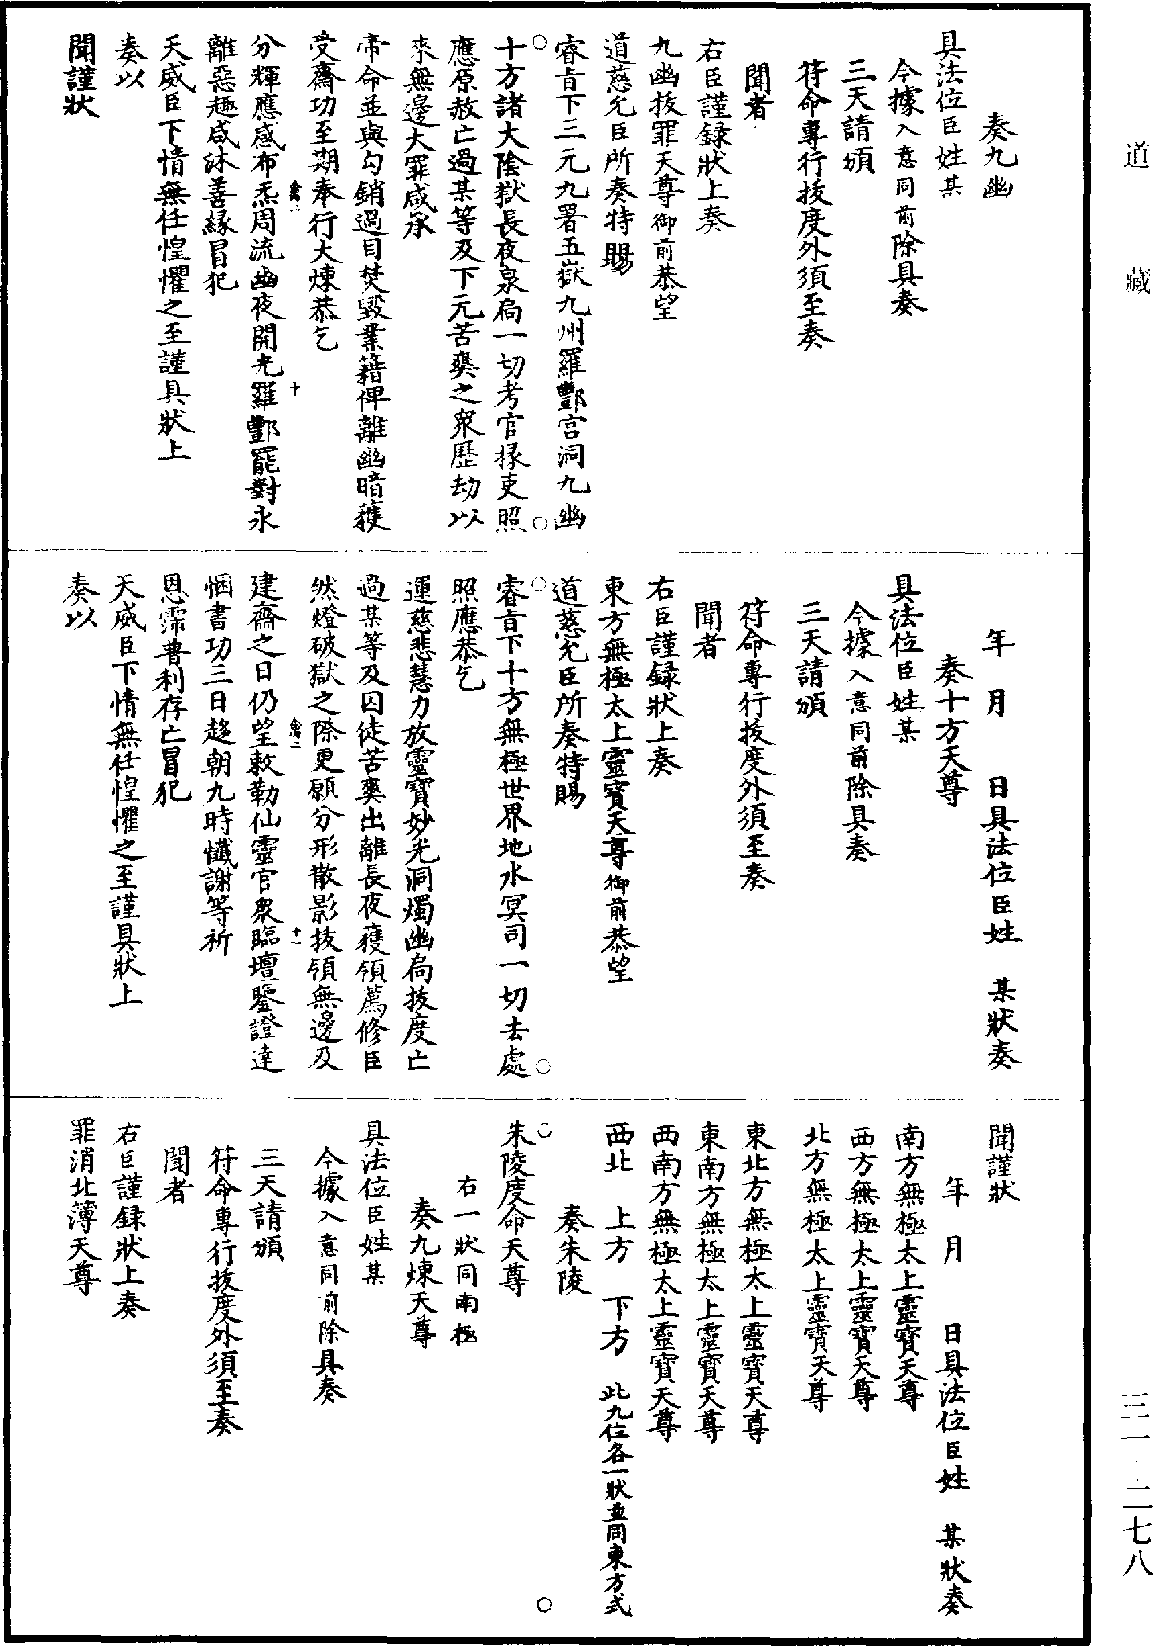 道　藏
奏九幽
具法位臣姓某
今據入意同前除具奏
三天請頒
符命專行拔度外須至奏
聞者
右臣謹錄狀上奏
九幽拔罪天尊御前恭望
道慈允臣所奏特賜
睿旨下三元九署五嶽九州羅酆宮洞九幽
十方諸大陰獄長夜泉扃一切考官掾吏照
應原赦亡過某等及下元苦爽之衆歷劫以
來無邊大罪咸承
帝命並與勾銷過目焚毀業籍俾離幽暗獲
受齋功至期奉行大煉恭乞
分輝應感布炁周流幽夜開光羅酆罷對永
離惡趣咸沐善緣冒犯
天威臣下情無任惶懼之至謹具狀上
奏以
聞謹狀
年　月　　日具法位臣姓　某狀奏
奏十方天尊
具法位臣姓某
今據入意同前除具奏
三天請頒
符命專行拔度外須至奏
聞者
右臣謹録狀上奏
東方無極太上靈寶天尊御前恭望
道慈允臣所奏特賜
睿旨下十方無極世界地水冥司一切去處
照應恭乞
運慈悲慧力放靈寶妙光洞燭幽扃拔度亡
過某等及囚徒苦爽出離長夜獲領薦修臣
然燈破獄之際更願分形散影拔領無邊及
建齋之日仍望敕勒仙靈官衆臨壇鑒證達
悃書功三日趍朝九時懺謝等祈
恩霈普利存亡冒犯
天威臣下情無任惶懼之至謹具狀上
奏以
聞謹狀
年　月　　日具法位臣姓　某狀奏
南方無極太上靈寶天尊
西方無極太上靈寶天尊
北方無極太上靈寶天尊
東北方無極太上靈寶天尊
東南方無極太上靈寶天尊
西南方無極太上靈寶天尊
西北　上方　下方　此九位各一狀並同東方式
奏朱陵
朱陵度命天尊
右一狀同南極
奏九煉天尊
具法位臣姓某
今據入意同前除具奏
三天請頒
符命專行拔度外須至奏
聞者
右臣謹録狀上奏
罪消北簿天尊
三一·二七八